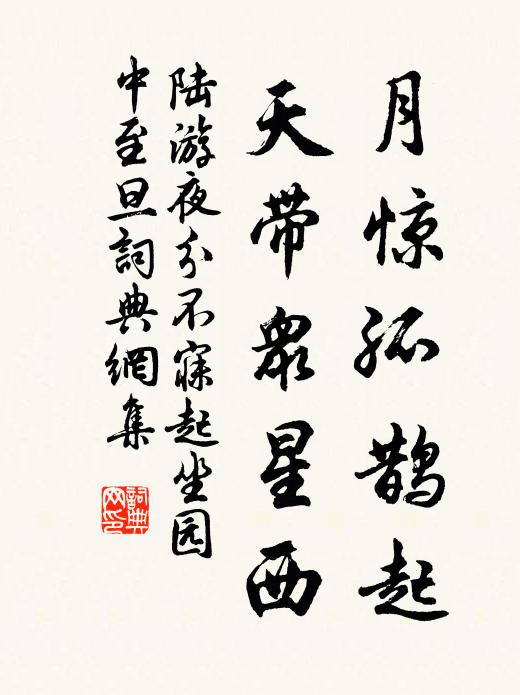 月惊孤鹊起
天带眾星西
陆游夜分不寐起坐园
中至旦詞典網集
詞典
网印